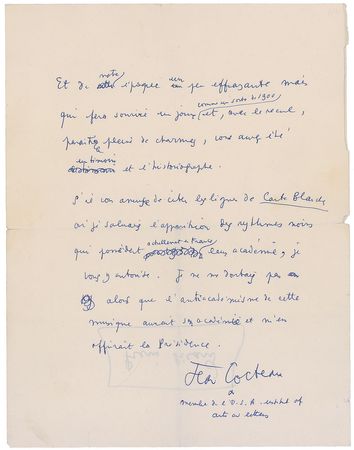 note
Et de époque un peu effrayante mais
comme un conte de 1900
qui fera sourire un jour et, avec le recul,
paraîtra pleine de charmes, vous avez été
le témoin
et l'historiographe.
S'il vous amuse de citer les lignes de Carte Blanche
où je saluais l'apparition des rythmes noirs
actuellement en France
qui possèdent leur académie, je
vous y autorise. Je ne me doutais pas
alors que l'antiacadémisme de cette
musique aurait son académie et m'en
offrirait la Présidence.
Jean Cocteau
membre de l'U.S.A. institut of
arts and letters